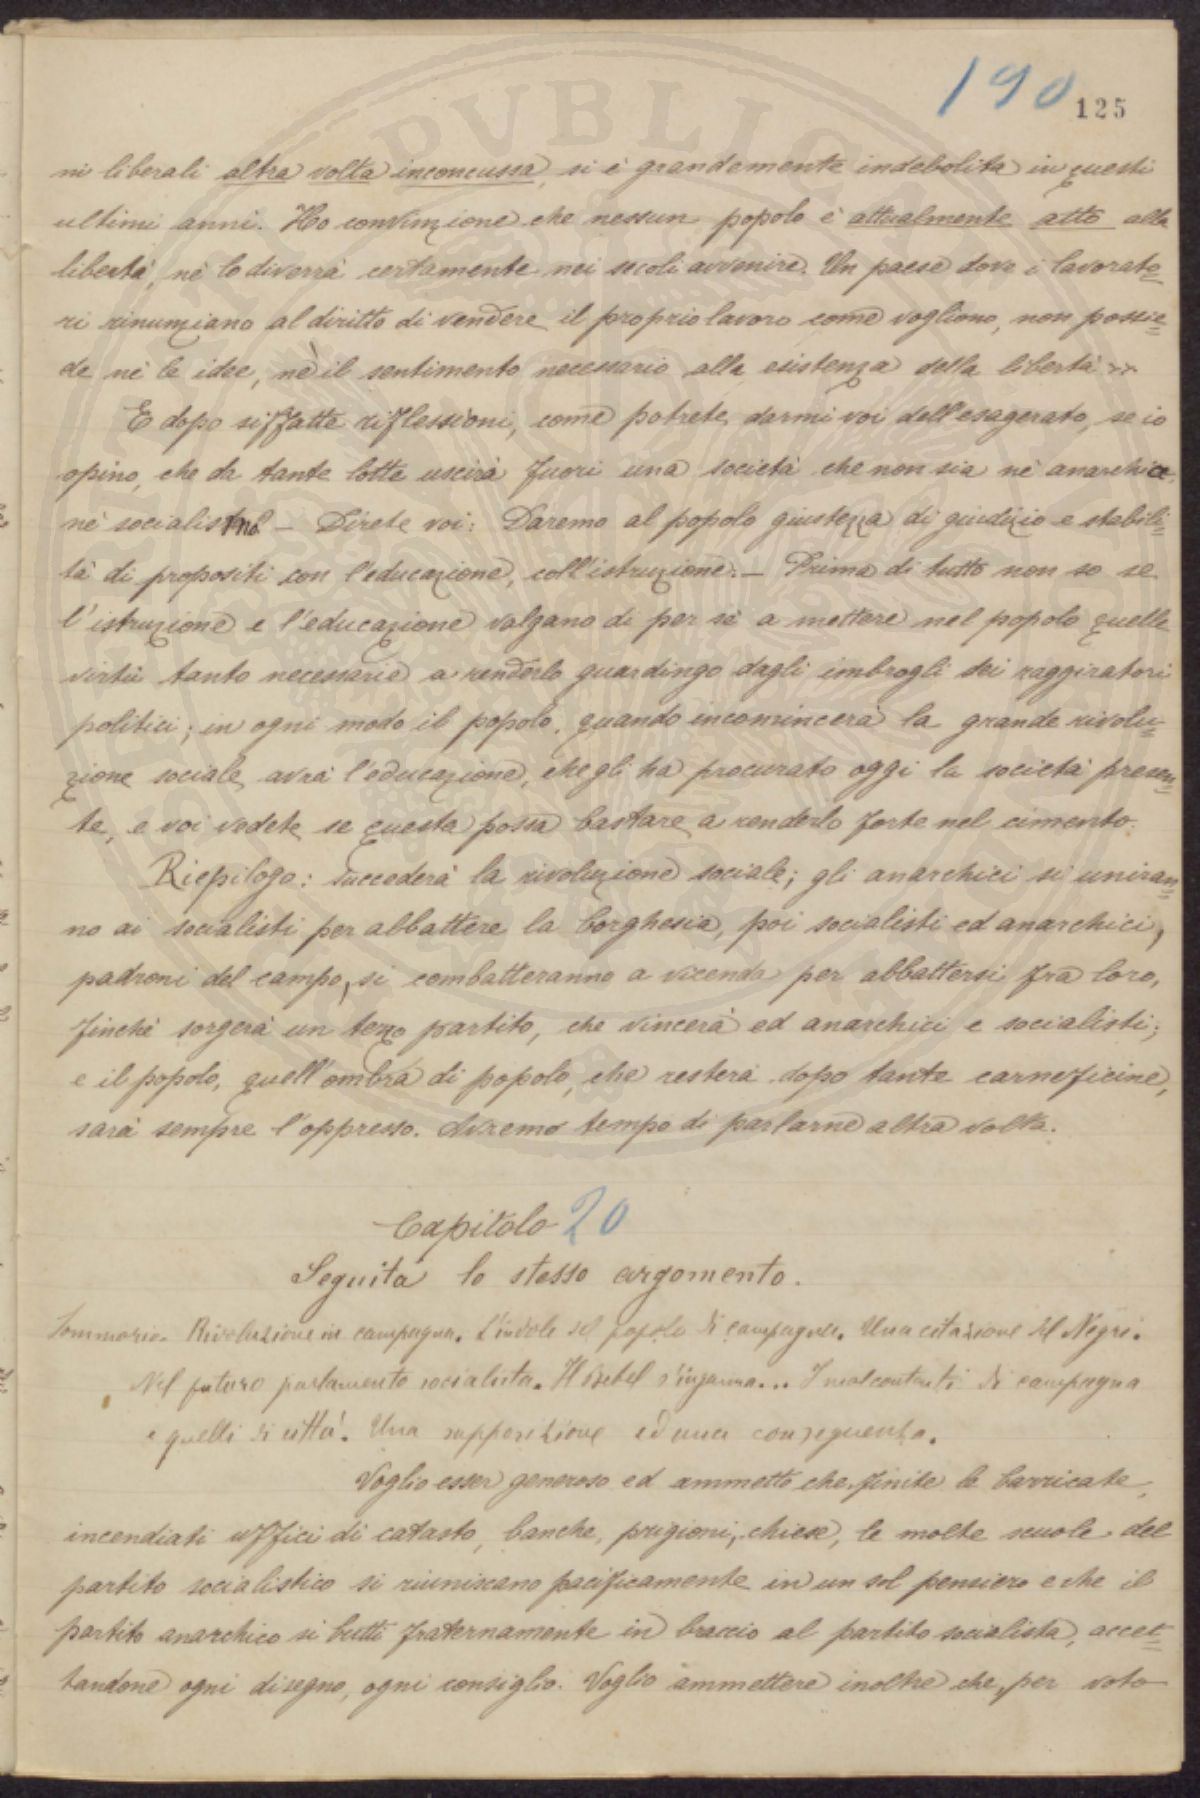 190 125
ni liberali altra volta inconcussa, si è grandemente indebolita in questi
ultimi anni. Ho convinzione che nessun popolo è attualmente atto alla
libertà, nè lo diverrà certamente nei secoli avvenire. Un paese dove i lavorato=
ri rinunziano al diritto di vendere il proprio lavoro come vogliono, non possie=
de nè le idee, nè il sentimento necessario alla esistenza della libertà »
E dopo siffatte riflessioni, come potrete darmi voi dell'esagerato, se io
opino, che da tante lotte uscirà fuori una società che non sia nè anarchica
nè socialista? — Direte voi: Daremo al popolo giustezza di giudizio e stabili=
tà di propositi con l'educazione, coll'istruzione. — Prima di tutto non so se
l'istruzione e l'educazione valgano di per sè a mettere nel popolo quelle
virtù tanto necessarie a renderlo guardingo dagli imbrogli dei raggiratori
politici; in ogni modo il popolo, quando incomincerà la grande rivolu=
zione sociale, avrà l'educazione, che gli ha procurato oggi la società presen=
te, e voi vedete se questa possa bastare a renderlo forte nel cimento.
Riepilogo: succederà la rivoluzione sociale; gli anarchici si uniran=
no ai socialisti per abbattere la borghesia, poi socialisti ed anarchici,
padroni del campo, si combatteranno a vicenda per abbattersi fra loro,
finchè sorgerà un terzo partito, che vincerà ed anarchici e socialisti;
e il popolo, quell'ombra di popolo, che resterà dopo tante carneficine,
sarà sempre l'oppresso. Avremo tempo di parlarne altra volta.
Capitolo 20
Seguita lo stesso argomento.
Sommario. Rivoluzione in campagna. L'indole del popolo di campagna. Una citazione del Negri.
Nel futuro parlamento socialista. Il Bebel s'inganna... I malcontenti di campagna
e quelli di città. Una supposizione ed una conseguenza.
Voglio esser generoso ed ammetto che, finite le barricate,
incendiati uffici di catasto, banche, prigioni, chiese, le molte scuole del
partito socialistico si riuniscano pacificamente in un sol pensiero e che il
partito anarchico si butti fraternamente in braccio al partito socialista, accet=
tandone ogni disegno, ogni consiglio. Voglio ammettere inoltre che, per voto